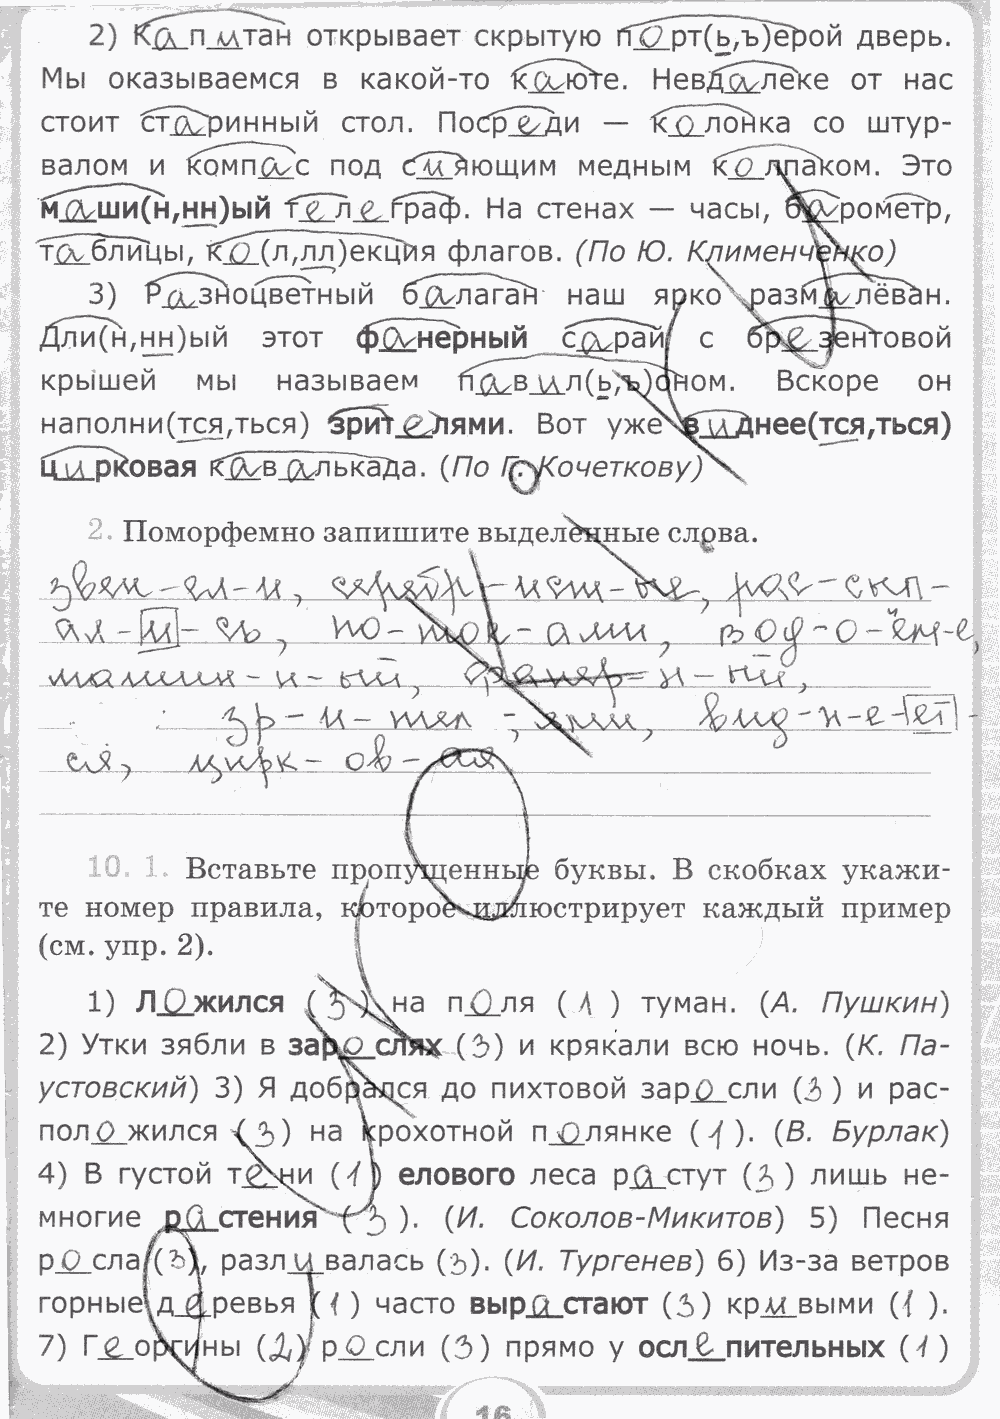 2) Капитан открывает скрытую порт(ь,ъ)ерой дверь.
Мы оказываемся в какой-то каюте. Невдалеке от нас
стоит старинный стол. Посреди — колонка со штур-
валом и компас под сияющим медным колпаком. Это
маши(н,нн)ый телеграф. На стенах — часы, барометр,
таблицы, ко(л,лл)екция флагов. (По Ю. Клименченко)
3) Разноцветный балаган наш ярко размалёван.
Дли(н,нн)ый этот фанерный сарай с брезентовой
крышей мы называем павил(ь,ъ)оном. Вскоре он
наполни(тся,ться) зрителями. Вот уже виднее(тся,ться)
цирковая кавалькада. (По Г. Кочеткову)
2. Поморфемно запишите выделенные слова.
звен-ел-и, серебр-ист-ые, рас-сып-
ал-и-сь, по-ток-ами, вод-о-ём-е,
машин-н-ый, фанер-н-ый,
зр-и-тел-ями, вид-н-е-ет-
ся, цирк-ов-ая
10. 1. Вставьте пропущенные буквы. В скобках укажи-
те номер правила, которое иллюстрирует каждый пример
(см. упр. 2).
1) Ложился (3) на поля (1) туман. (А. Пушкин)
2) Утки зябли в зарослях (3) и крякали всю ночь. (К. Па-
устовский) 3) Я добрался до пихтовой заросли (3) и рас-
положился (3) на крохотной полянке (1). (В. Бурлак)
4) В густой тени (1) елового леса растут (3) лишь не-
многие растения (3). (И. Соколов-Микитов) 5) Песня
росла (3), разливалась (3). (И. Тургенев) 6) Из-за ветров
горные деревья (1) часто вырастают (3) кривыми (1).
7) Георгины (2) росли (3) прямо у ослепительных (1)
16